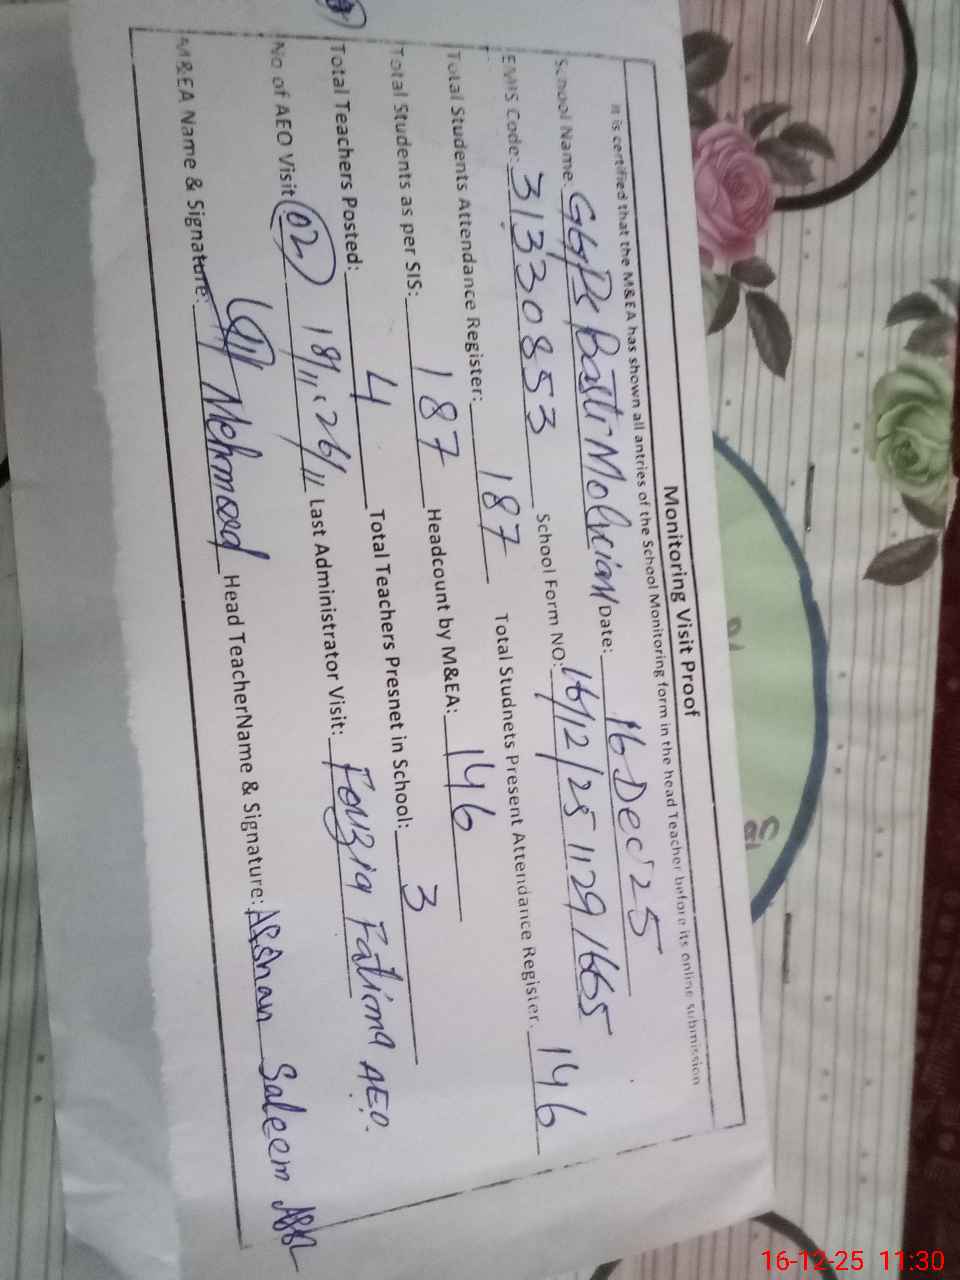 Monitoring Visit Proof
It is certified that the M&EA has shown all antries of the School Monitoring form in the head Teacher before its online submission
School Name: GGPS Basti Molvian Date: 16 Dec 25
EMIS Code: 31330853 School Form NO: 16/12/25 1129 1665
Total Students Attendance Register: 187 Total Studnets Present Attendance Register: 146
Total Students as per SIS: 187 Headcount by M&EA: 146
Total Teachers Posted: 4 Total Teachers Presnet in School: 3
No of AEO Visit 02 18/11, 26/11 Last Administrator Visit: Fouzia Fatima AEO.
M&EA Name & Signature: Mehmood Head TeacherName & Signature: Afshan Saleem
16-12-25 11:30